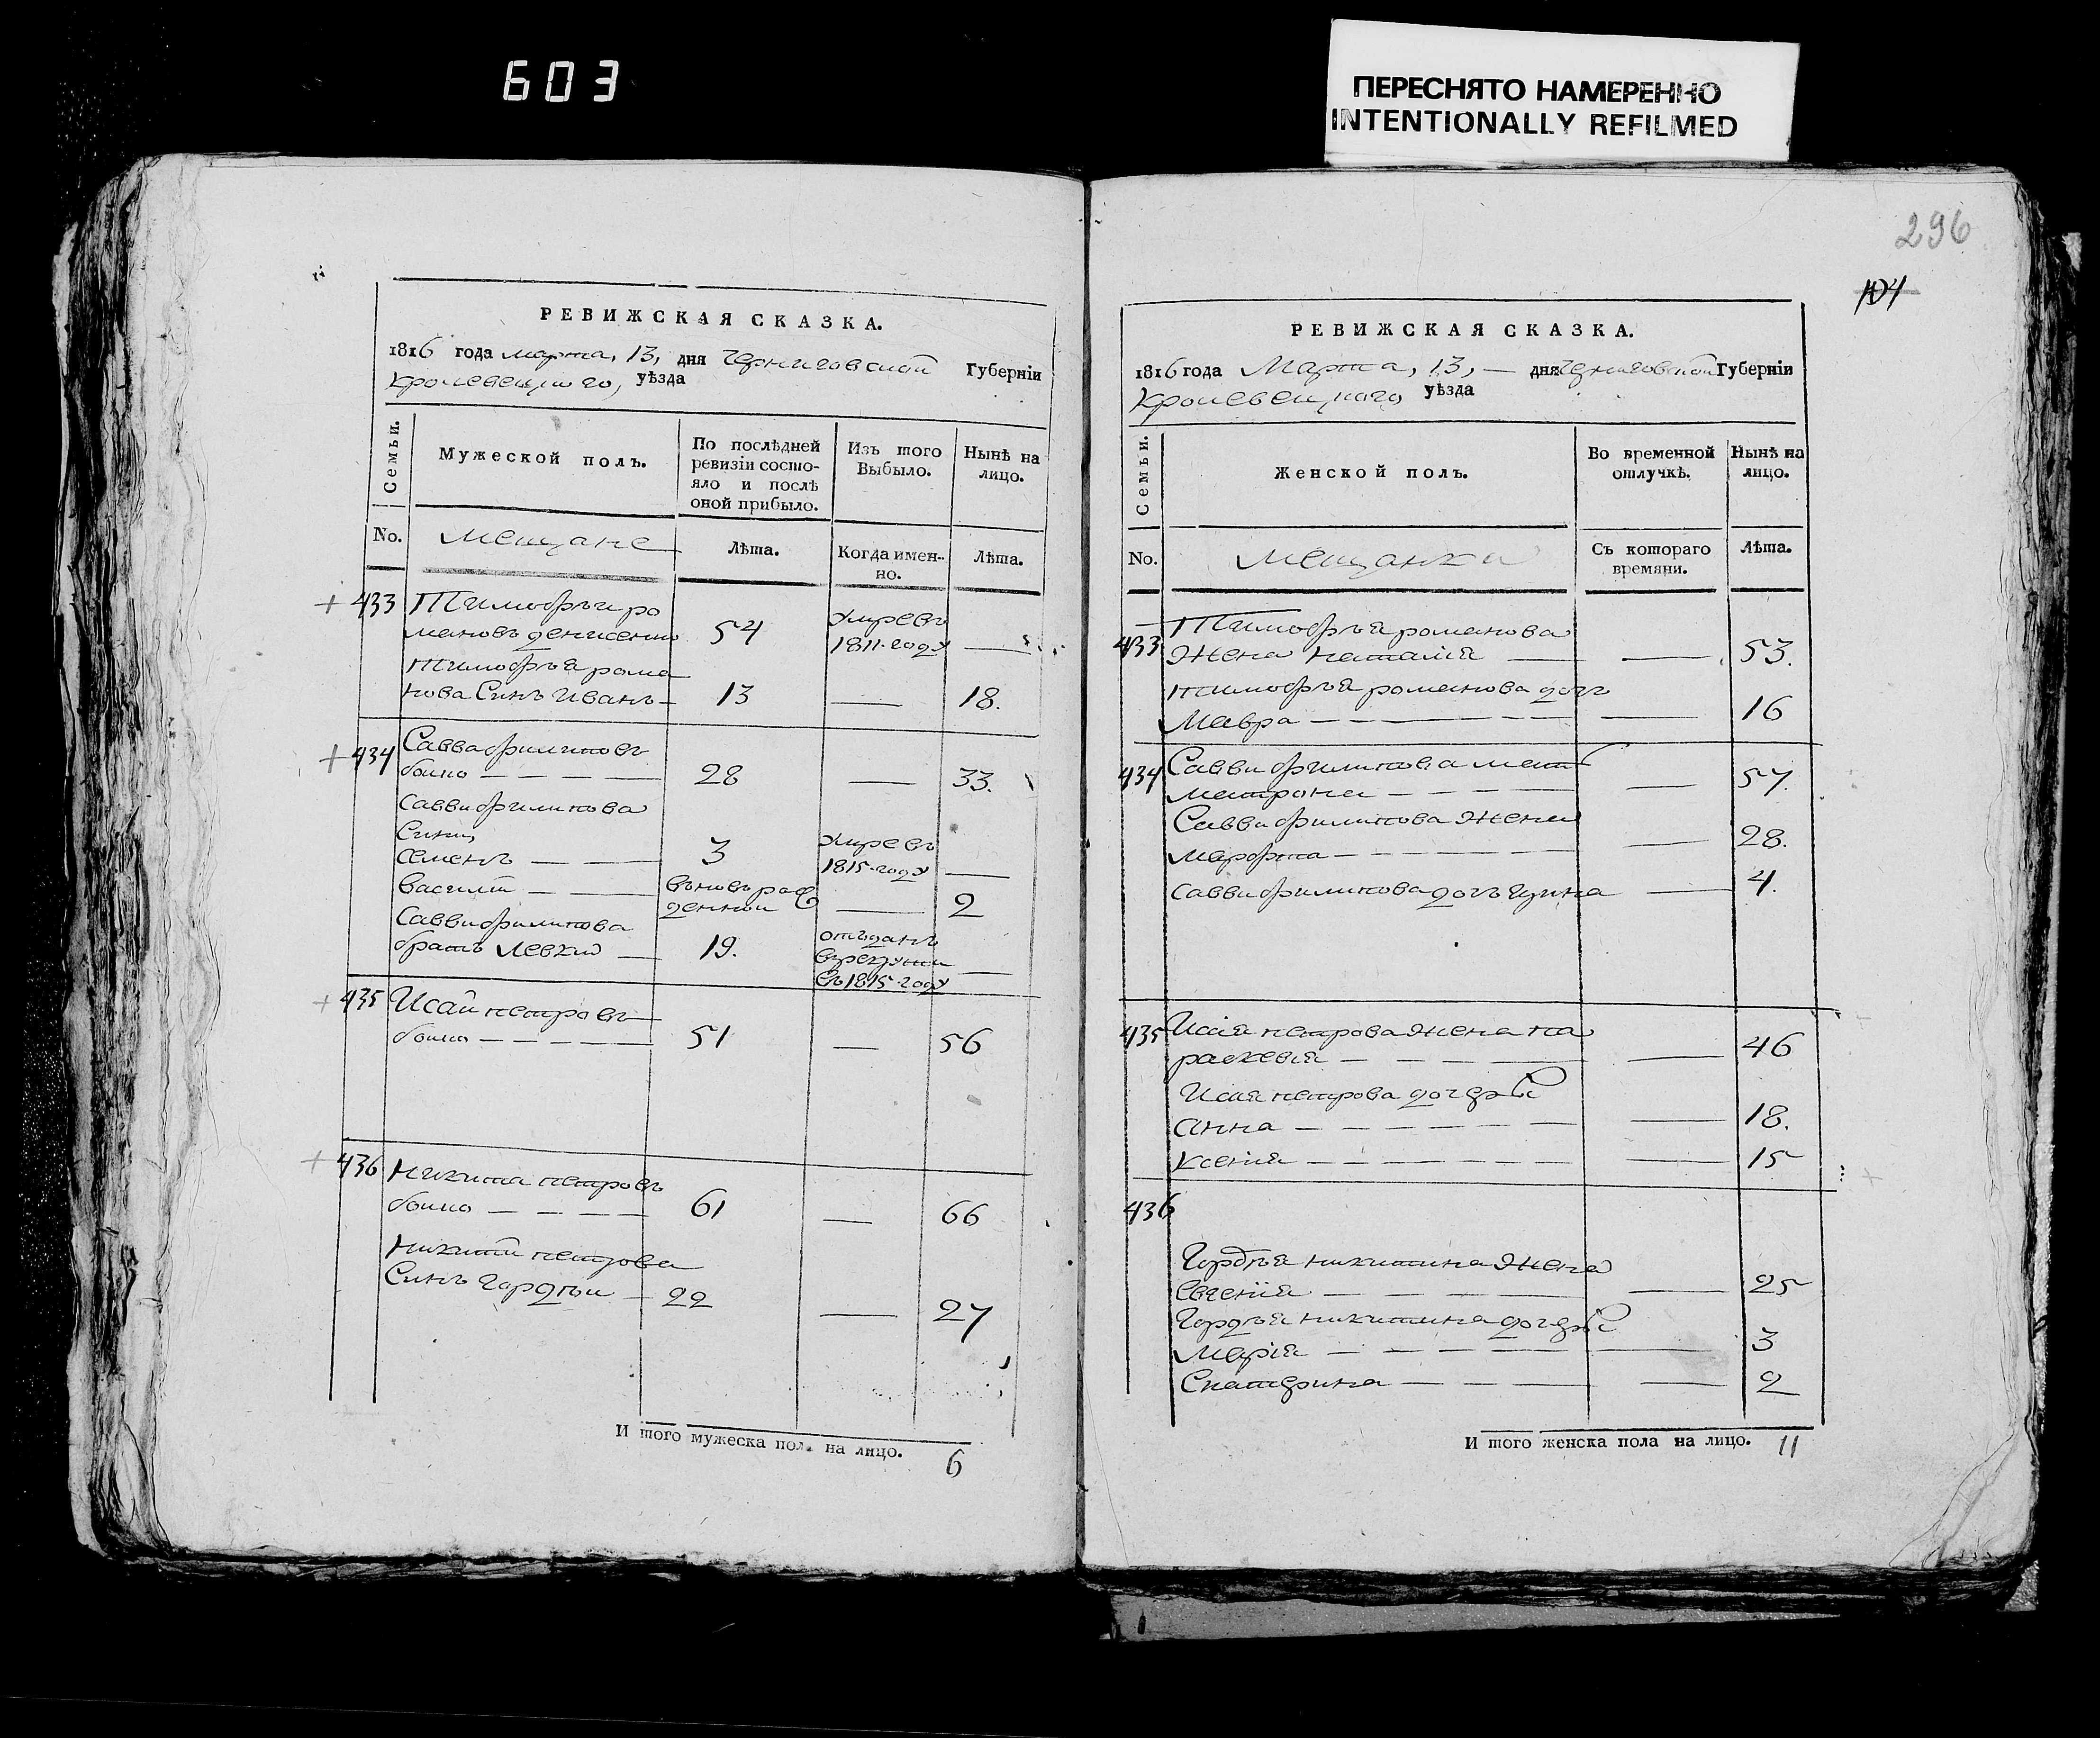 603
ПЕРЕСНЯТО НАМЕРЕННО
INTENTIONALLY REFILMED
296
104
РЕВИЖСКАЯ СКАЗКА.
1816 года марта, 13, дня Черниговской Губерніи
Кролевецкого, уѣзда
Семьи.
Мужеской полъ.
По послѣдней ревизіи состояло и послѣ оной прибыло.
Изъ того Выбыло.
Нынѣ на лицо.
No.
мещане
Лѣта.
Когда именно.
Лѣта.
433 Тимофѣи ро
мановъ денисенко 54 умре въ 1811-году —
Тимофѣя рома
нова Синъ Иванъ — 13 — 18.
434 Савва филиповъ
боико — 28 — 33.
Савви филипова
Сини,
Семенъ — 3 умре въ 1815-году —
Василій — вновь рожденнои — 2
Савви филипова
братъ Левкио — 19. отъданъ в рекрути въ 1815-году —
435 Исаи петровъ
боико — 51 — 56
436 Никита петровъ
боико — 61 — 66
Никити петрова
Синъ Гордѣи — 22 — 27
И того мужеска пола на лицо. 6
РЕВИЖСКАЯ СКАЗКА.
1816 года Марта, 13, — дня Черниговской Губерніи
Кролевецкого уѣзда
Семьи.
Женской полъ.
Во временной отлучкѣ.
Нынѣ на лицо.
No.
мещанки
Съ котораго времяни.
Лѣта.
433 Тимофѣя романова
Жена наталія — — 53.
Тимофѣя романова дочъ
Мавра — — 16
434 Савви филипова мать
матрона — — 57.
Савви филипова Жена
марфта — — 28.
Савви филипова дочъ Ирина — 4.
435 Исая петрова Жена па
раскевія — — 46
Исая петрова дочери
Анна — — 18.
Ксенія — — 15
436
Гордѣя никитина Жена
Евгенія — — 25
Гордѣя никитина дочери
Марія — — 3
Екатерина — — 2
И того женска пола на лицо. 11